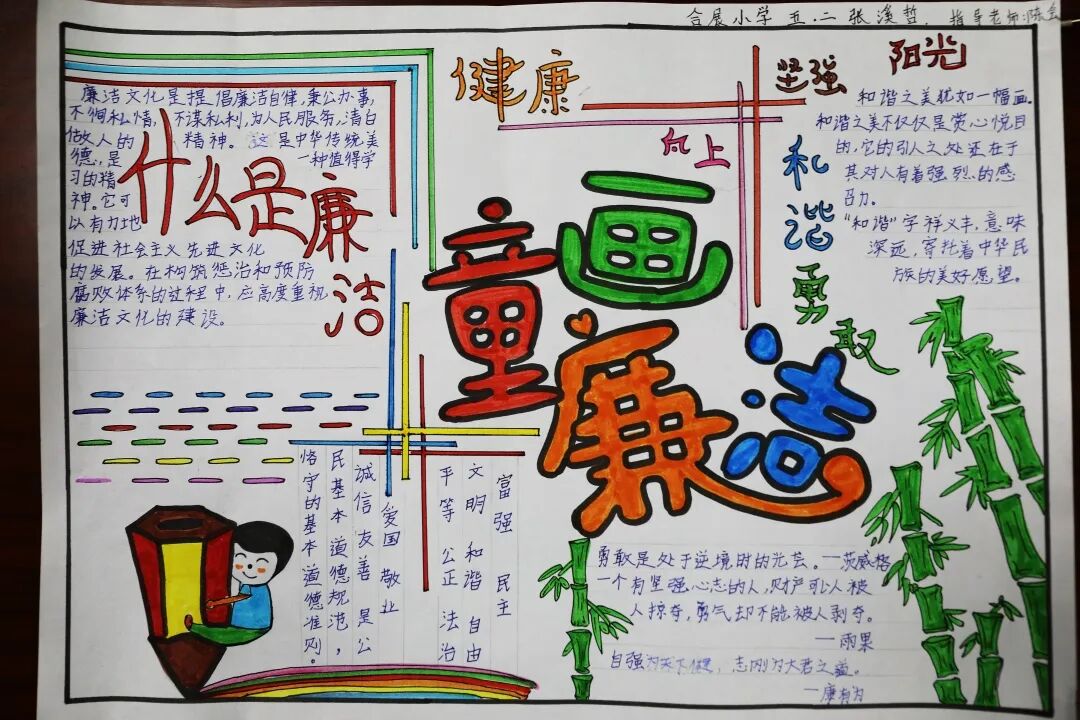 合展小学 五.二 张溪哲. 指导老师:陈
健康
坚强
阳光
向上
和谐
勇敢
童画廉洁
什么是廉洁
廉洁文化是提倡廉洁自律,秉公办事,
不徇私情,不谋私利,为人民服务,清白
做人的精神。这是中华传统美
德,是一种值得学
习的精
神。它可
以有力地
促进社会主义先进文化
的发展。在构筑惩治和预防
腐败体系的过程中,应高度重视
廉洁文化的建设。
和谐之美犹如一幅画。
和谐之美不仅仅是赏心悦目
的,它的引人之处还在于
其对人有着强烈的感
召力。
“和谐”字祥义丰,意味
深远,寄托着中华民
族的美好愿望。
富强 民主
文明 和谐 自由
平等 公正 法治
爱国 敬业
诚信 友善 是公
民基本道德规范,
恪守的基本道德准则。
勇敢是处于逆境时的光芒。—茨威格
一个有坚强心志的人,财产可以被
人掠夺,勇气却不能被人剥夺。
—雨果
自强为天下健,志刚为大君之道。
—康有为